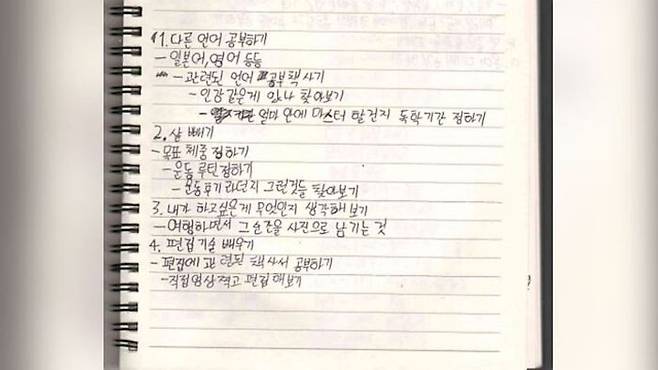 1. 다른 언어 공부하기
- 일본어, 영어 등등
- 관련된 언어 공부책 사기
- 인강같은게 있나 찾아보기
- 얼마 안에 마스터 할건지 독학기간 정하기
2. 살 빼기
- 목표 체중 정하기
- 운동 루틴정하기
- 운동후기라던지 그런것들 찾아보기
3. 내가 하고싶은게 무엇인지 생각해보기
- 여행하면서 그 순간을 사진으로 남기는 것
4. 편집기술 배우기
- 편집에 관련된 책사서 공부하기
- 직접영상찍고 편집해보기